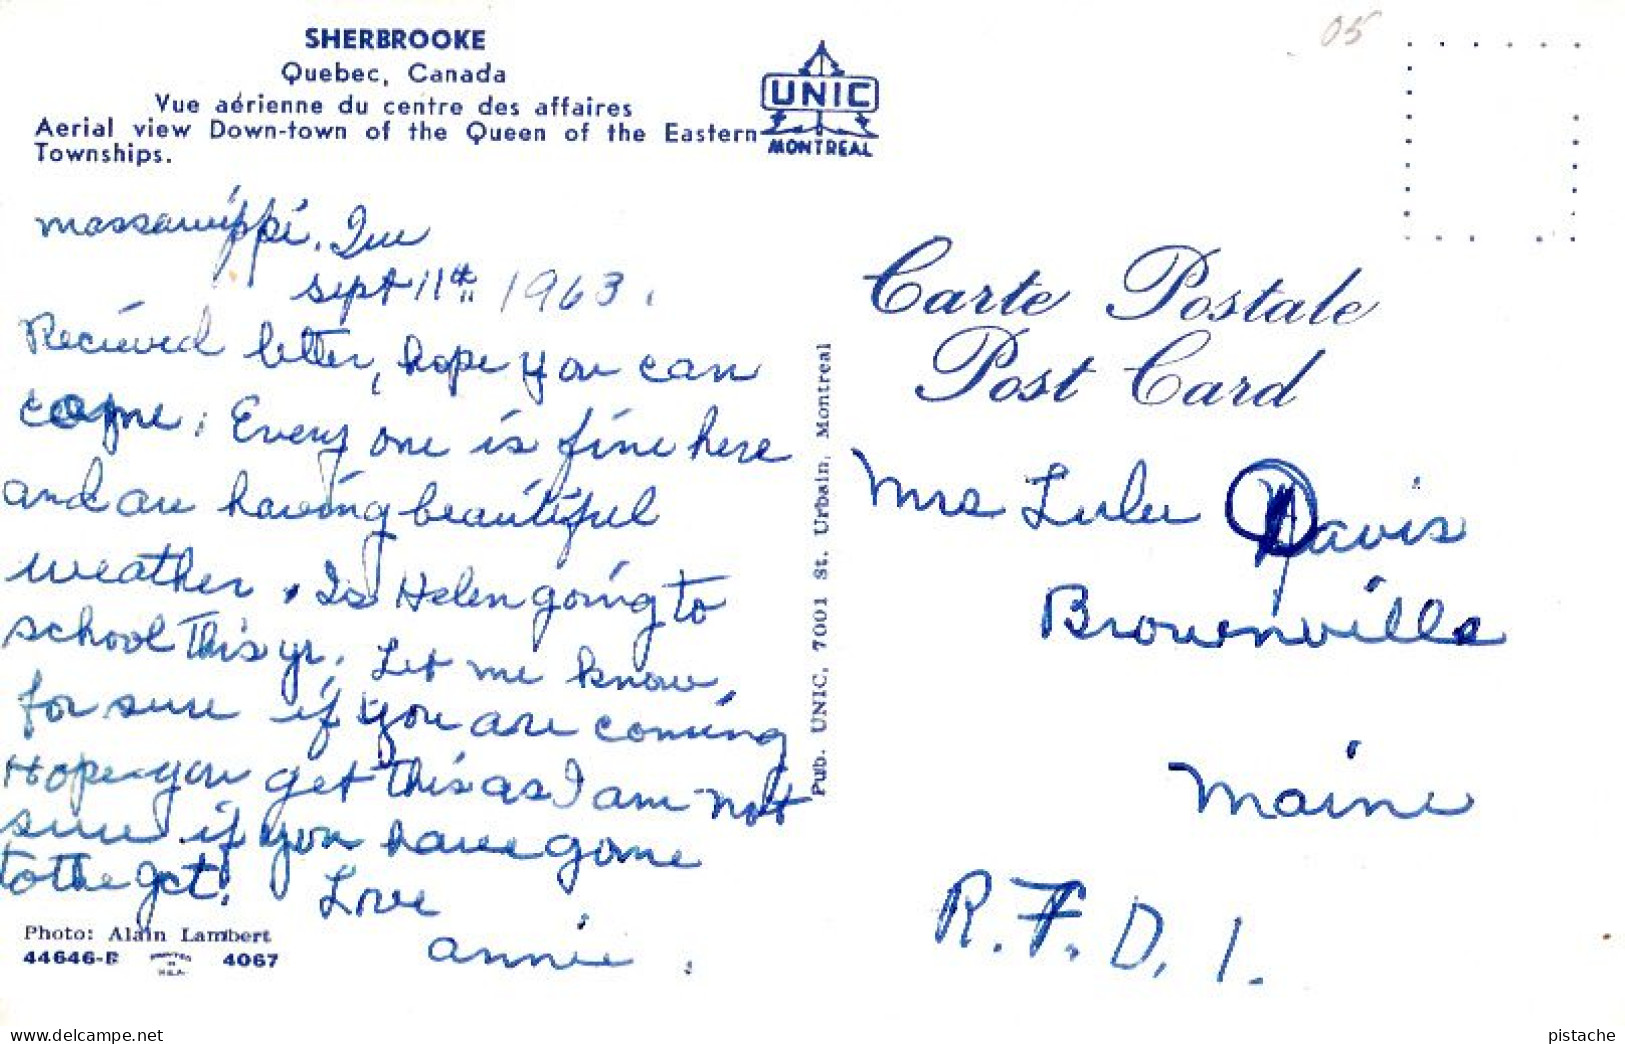 SHERBROOKE
Quebec, Canada
Vue aérienne du centre des affaires
Aerial view Down-town of the Queen of the Eastern
Townships.
UNIC
MONTREAL
05
Massawippi, Que
Sept 11th 1963.
Recieved letter, hope you can
come. Every one is fine here
and are having beautiful
weather. Is Helen going to
school this yr. Let me know
for sure if you are coming
Hope you get this as I am not
sure if you have gone
to the
Love
Annie.
Photo: Alain Lambert
44646-B PRINTED IN U.S.A. 4067
Pub. UNIC, 7001 St. Urbain, Montreal
Carte Postale
Post Card
Mrs Lulu Davis
Brownville
Maine
R.F.D. 1.
www.delcampe.net
pistache